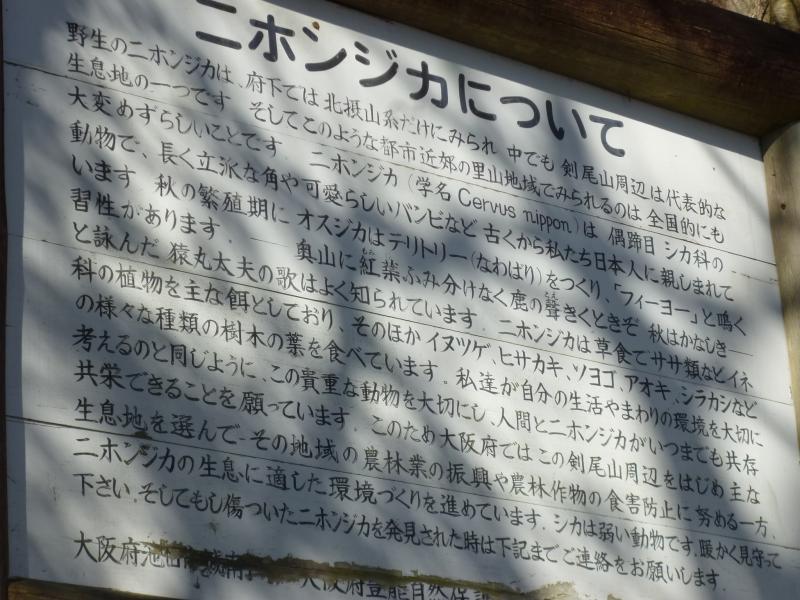 ニホンジカについて
野生のニホンジカは、府下では北摂山系だけにみられ 中でも 剣尾山周辺は代表的な
生息地の一つです そしてこのような都市近郊の里山地域でみられるのは 全国的にも
大変めずらしいことです ニホンジカ（学名 Cervus nippon）は 偶蹄目 シカ科の
動物で、長く立派な角や可愛らしいバンビなど 古くから私たち日本人に親しまれて
います 秋の繁殖期に オスジカはテリトリー（なわばり）をつくり、「フィーヨー」と鳴く
習性があります ― 奥山に紅葉ふみ分けなく鹿の聲きくときぞ 秋はかなしき―
と詠んだ 猿丸太夫の歌はよく知られています. ニホンジカは草食でササ類などイネ
科の植物を主な餌としており、そのほか イヌツゲ、ヒサカキ、ソヨゴ、アオキ、シラカシなど
の様々な種類の樹木の葉を食べています. 私達が自分の生活やまわりの環境を大切に
考えるのと同じように、この貴重な動物を大切にし、人間とニホンジカがいつまでも共存
共栄できることを願っています. このため大阪府ではこの剣尾山周辺をはじめ主な
生息地を選んで その地域の農林業の振興や農林作物の食害防止に努める一方、
ニホンジカの生息に適した環境づくりを進めています. シカは弱い動物です、暖かく見守って
下さい.そしてもし傷ついたニホンジカを発見された時は下記までご連絡をお願いします.
大阪府池田 大阪府豊能自然保